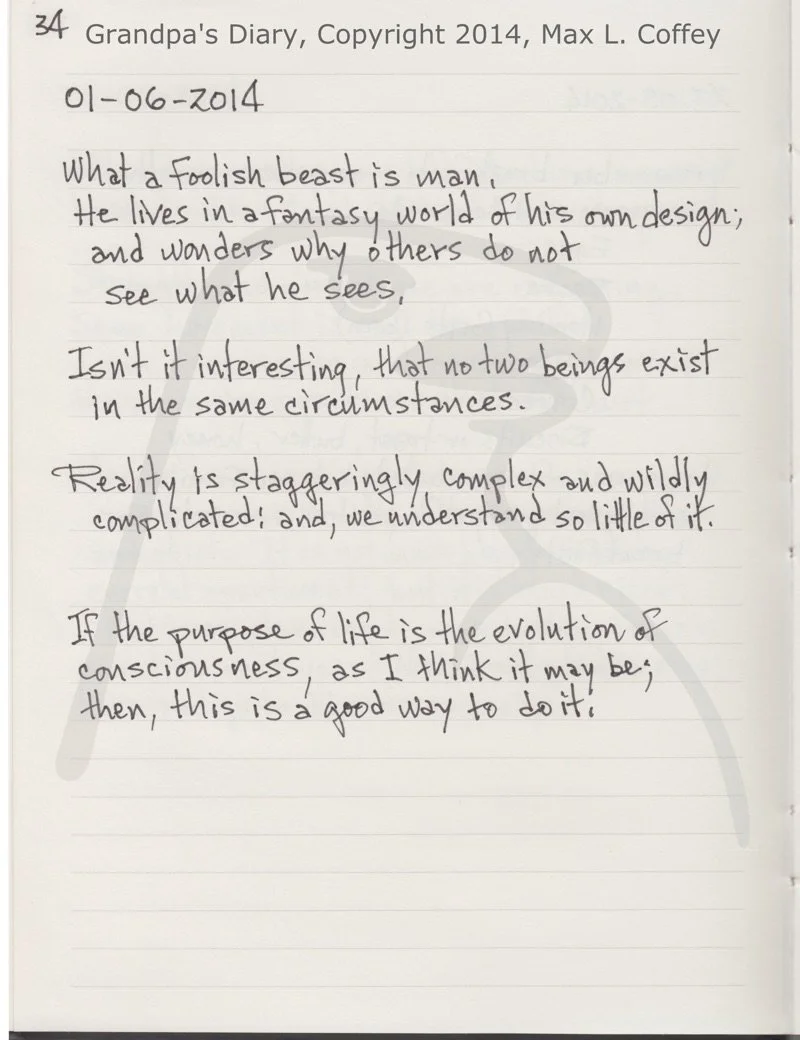 34 Grandpa's Diary, Copyright 2014, Max L. Coffey
01-06-2014
What a foolish beast is man.
He lives in a fantasy world of his own design;
and wonders why others do not
see what he sees.
Isn't it interesting, that no two beings exist
in the same circumstances.
Reality is staggeringly complex and wildly
complicated; and, we understand so little of it.
If the purpose of life is the evolution of
consciousness, as I think it may be;
then, this is a good way to do it.